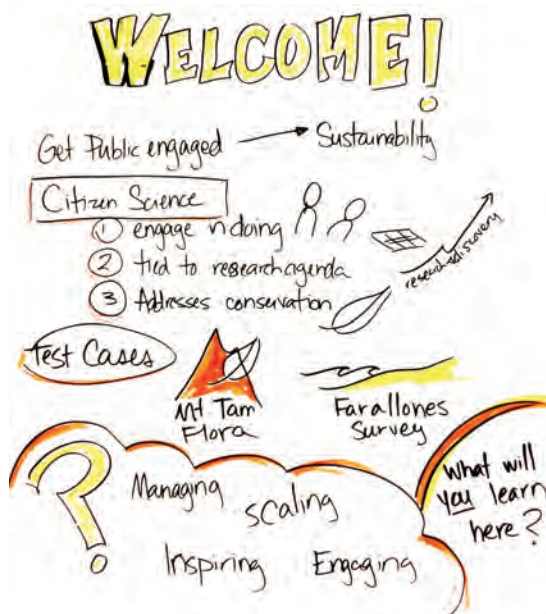 WELCOME!
Get Public engaged → Sustainability
Citizen Science
1 engage n doing
2 tied to research agenda
3 Addresses conservation
research & discovery
Test Cases
Mt Tam
Flora
Farallones
Survey
Managing
Scaling
Inspiring Engaging
What will
you learn
here?
?